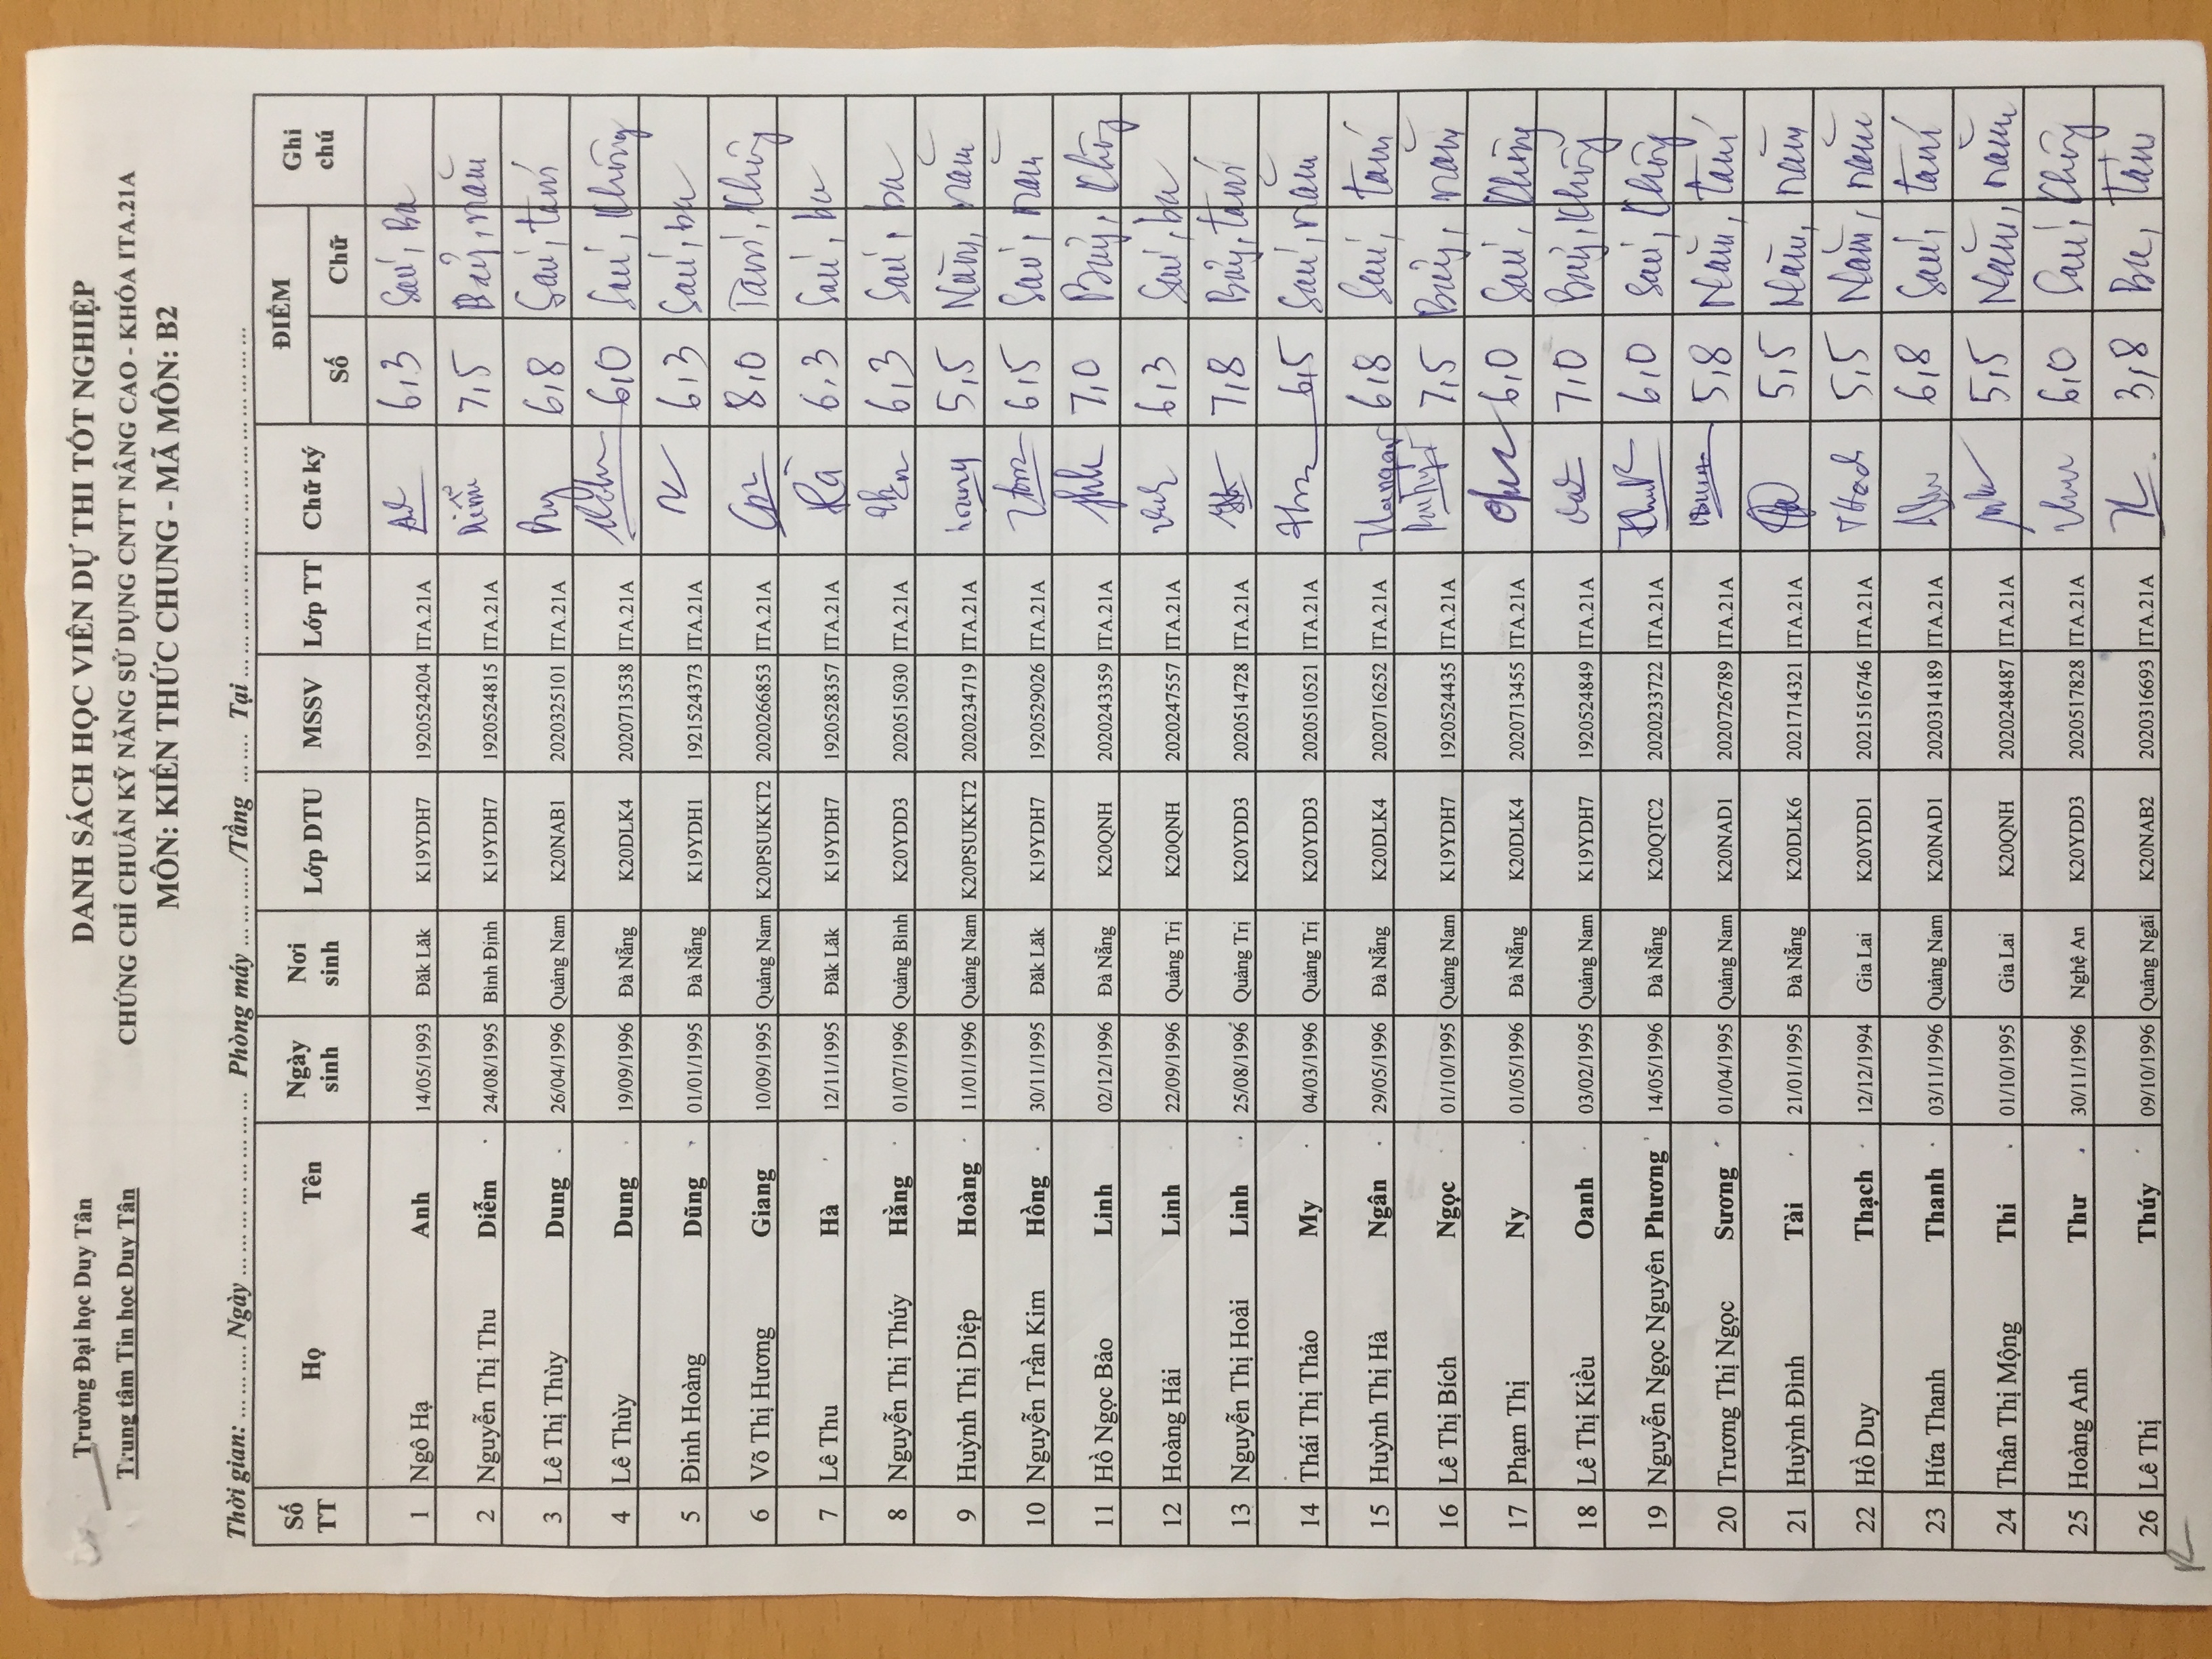 Trường Đại học Duy Tân
Trung tâm Tin học Duy Tân
DANH SÁCH HỌC VIÊN DỰ THI TỐT NGHIỆP
CHỨNG CHỈ CHUẨN KỸ NĂNG SỬ DỤNG CNTT NÂNG CAO - KHÓA ITA.21A
MÔN: KIẾN THỨC CHUNG - MÃ MÔN: B2
Thời gian: ... ... .... Ngày ... ... ... ... ... ... ... Phòng máy ... ... ... ... /Tầng ... ... ... Tại ... ... ... ... ... ... ... ... ... ... ...
Số TT Họ Tên Ngày sinh Nơi sinh Lớp DTU MSSV Lớp TT Chữ ký ĐIỂM Số Chữ Ghi chú
1 Ngô Hạ Anh 14/05/1993 Đăk Lăk K19YDH7 1920524204 ITA.21A 6,3 Sáu, Ba
2 Nguyễn Thị Thu Diễm 24/08/1995 Bình Định K19YDH7 1920524815 ITA.21A Diễm 7,5 Bảy, năm
3 Lê Thị Thùy Dung 26/04/1996 Quảng Nam K20NAB1 2020325101 ITA.21A 6,8 Sáu, tám
4 Lê Thùy Dung 19/09/1996 Đà Nẵng K20DLK4 2020713538 ITA.21A 6,0 Sáu, không
5 Đinh Hoàng Dũng 01/01/1995 Đà Nẵng K19YDH1 1921524373 ITA.21A 6,3 Sáu, ba
6 Võ Thị Hương Giang 10/09/1995 Quảng Nam K20PSUKKT2 2020266853 ITA.21A 8,0 Tám, không
7 Lê Thu Hà 12/11/1995 Đăk Lăk K19YDH7 1920528357 ITA.21A Hà 6,3 Sáu, ba
8 Nguyễn Thị Thúy Hằng 01/07/1996 Quảng Bình K20YDD3 2020515030 ITA.21A 6,3 Sáu, ba
9 Huỳnh Thị Diệp Hoàng 11/01/1996 Quảng Nam K20PSUKKT2 2020234719 ITA.21A 5,5 Năm, năm
10 Nguyễn Trần Kim Hồng 30/11/1995 Đăk Lăk K19YDH7 1920529026 ITA.21A 6,5 Sáu, năm
11 Hồ Ngọc Bảo Linh 02/12/1996 Đà Nẵng K20QNH 2020243359 ITA.21A 7,0 Bảy, không
12 Hoàng Hải Linh 22/09/1996 Quảng Trị K20QNH 2020247557 ITA.21A 6,3 Sáu, ba
13 Nguyễn Thị Hoài Linh 25/08/1996 Quảng Trị K20YDD3 2020514728 ITA.21A 7,8 Bảy, tám
14 Thái Thị Thảo My 04/03/1996 Quảng Trị K20YDD3 2020510521 ITA.21A 6,5 Sáu, năm
15 Huỳnh Thị Hà Ngân 29/05/1996 Đà Nẵng K20DLK4 2020716252 ITA.21A 6,8 Sáu, tám
16 Lê Thị Bích Ngọc 01/10/1995 Quảng Nam K19YDH7 1920524435 ITA.21A 7,5 Bảy, năm
17 Phạm Thị Ny 01/05/1996 Đà Nẵng K20DLK4 2020713455 ITA.21A 6,0 Sáu, không
18 Lê Thị Kiều Oanh 03/02/1995 Quảng Nam K19YDH7 1920524849 ITA.21A 7,0 Bảy, không
19 Nguyễn Ngọc Nguyên Phương 14/05/1996 Đà Nẵng K20QTC2 2020233722 ITA.21A 6,0 Sáu, không
20 Trương Thị Ngọc Sương 01/04/1995 Quảng Nam K20NAD1 2020726789 ITA.21A 5,8 Năm, tám
21 Huỳnh Đình Tài 21/01/1995 Đà Nẵng K20DLK6 2021714321 ITA.21A 5,5 Năm, năm
22 Hồ Duy Thạch 12/12/1994 Gia Lai K20YDD1 2021516746 ITA.21A Thạch 5,5 Năm, năm
23 Hứa Thanh Thanh 03/11/1996 Quảng Nam K20NAD1 2020314189 ITA.21A 6,8 Sáu, tám
24 Thân Thị Mộng Thi 01/10/1995 Gia Lai K20QNH 2020248487 ITA.21A 5,5 Năm, năm
25 Hoàng Anh Thư 30/11/1996 Nghệ An K20YDD3 2020517828 ITA.21A 6,0 Sáu, không
26 Lê Thị Thúy 09/10/1996 Quảng Ngãi K20NAB2 2020316693 ITA.21A 3,8 Ba, tám